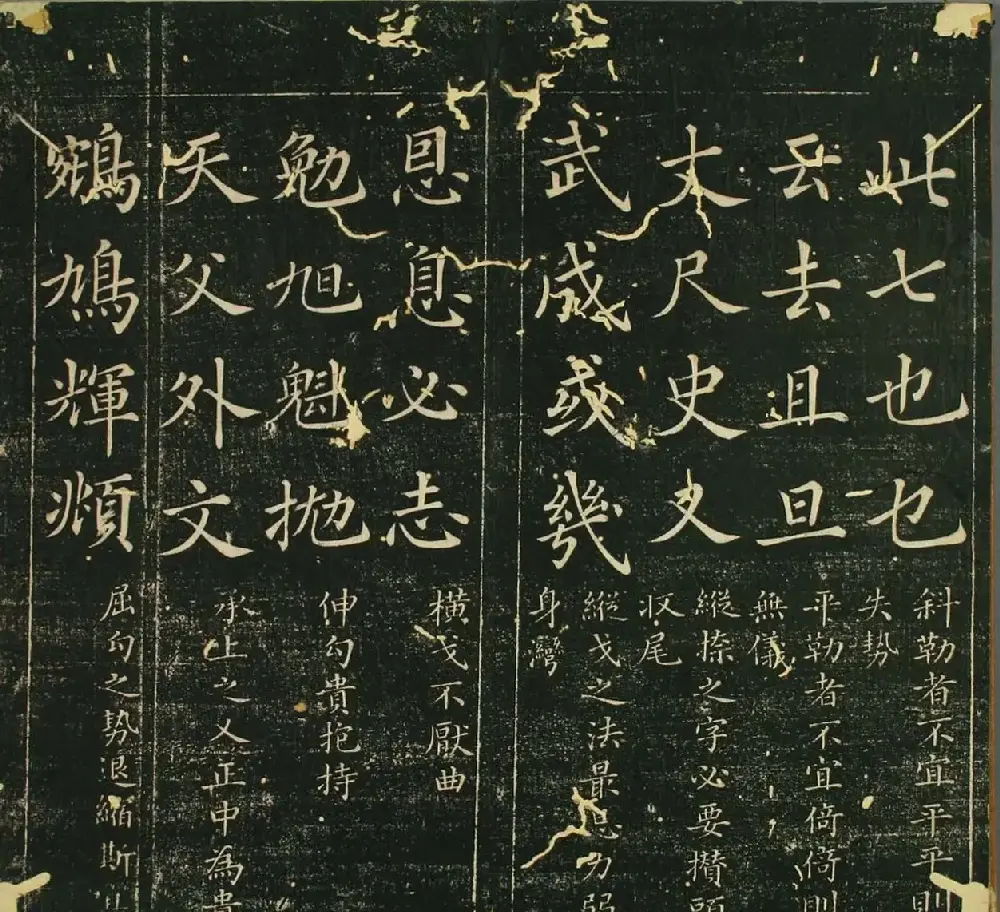 此七也乜
斜勒者不宜平平則
失勢
云去且旦
平勒者不宜倚倚則
無儀
丈尺史又
縱捺之字必要攢頭
收尾
武成或幾
縱戈之法最忌力弱
身彎
恩息必志
橫戈不厭曲
勉旭魁拋
伸勾貴抱持
天父外文
承上之乂正中為貴
鷄鳩輝頫
屈勾之勢退縮斯